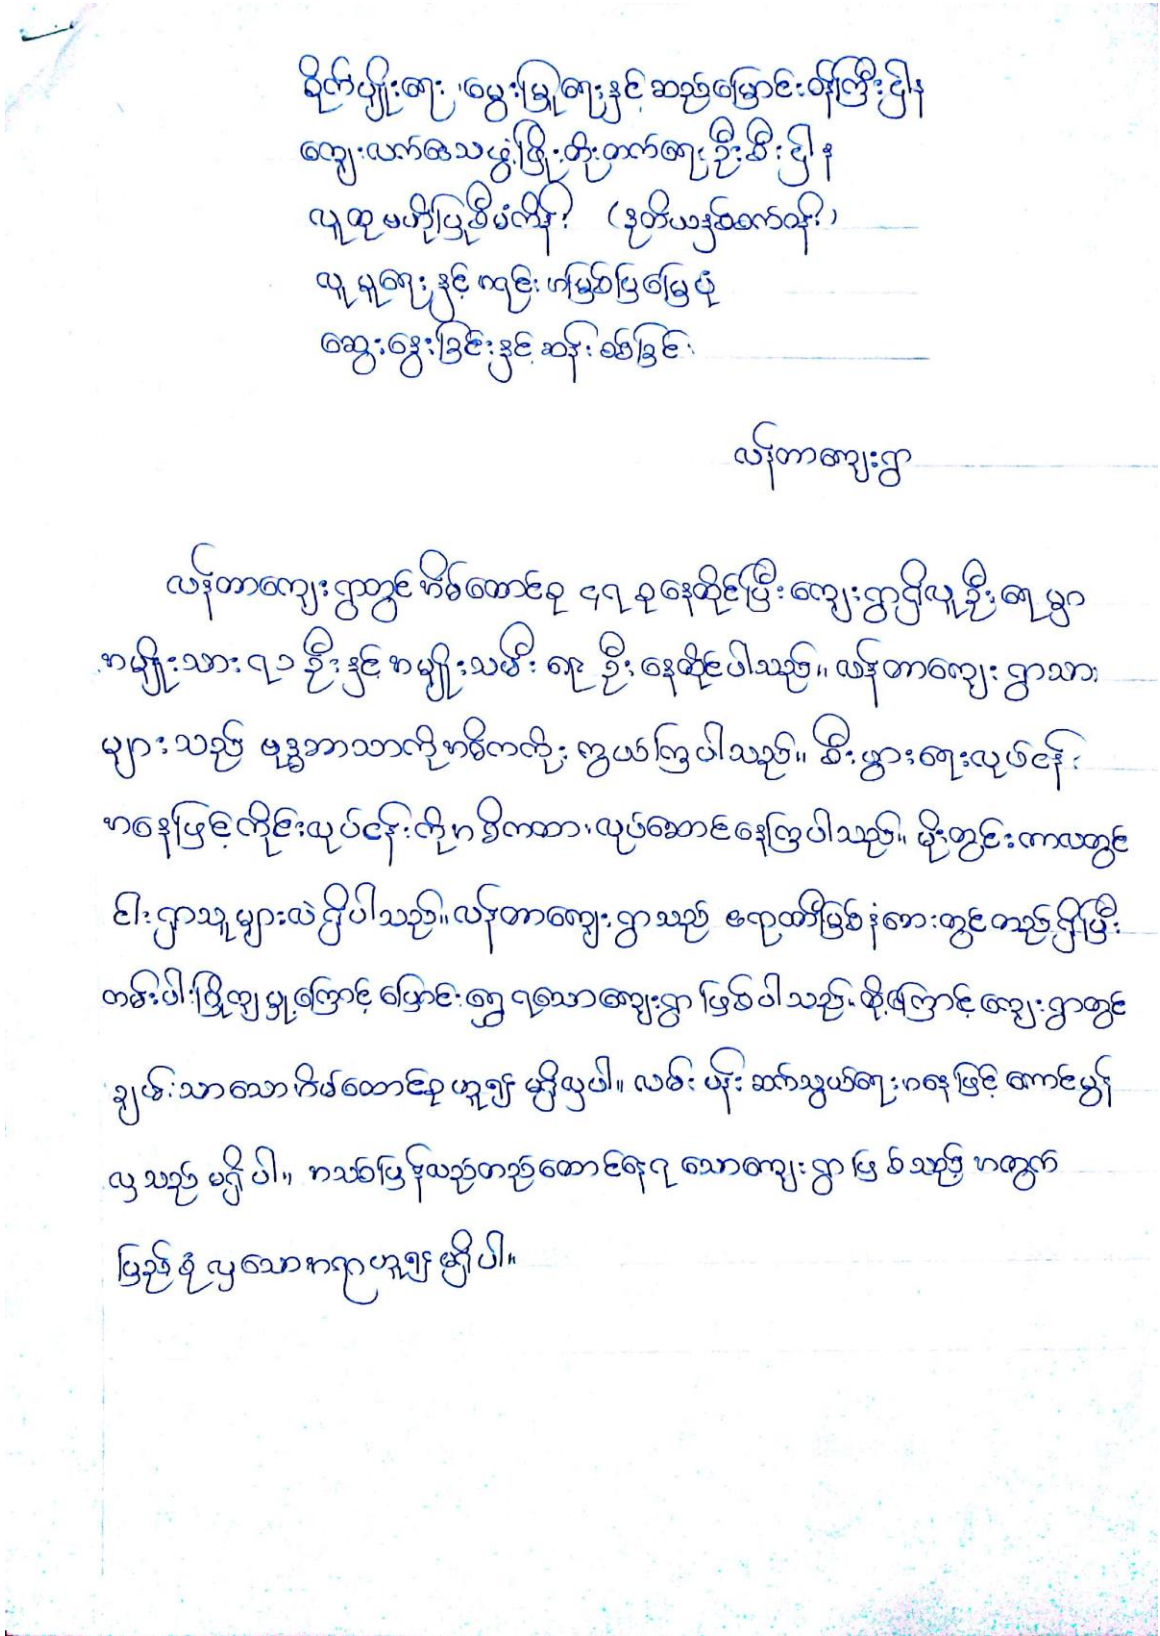 စိုက်ပျိုးရေး ၊မွေးမြူရေးနှင့် ဆည်မြောင်းဝန်ကြီးဌာန
ကျေးလက်ဒေသဖွံ့ဖြိုးတိုးတက်ရေးဦးစီးဌာန
လူထုမဟိုပြုစီမံကိန်း (ဒုတိယနှစ်စက်ဝန်း)
လူမှုရေးနှင့် ကျင်းအမြစ်ပြမြေပုံ
ဆွေးနွေးခြင်းနှင့် ဆန်းစစ်ခြင်း
လန်တာကျေးရွာ
လန်တာကျေးရွာတွင် အိမ်ထောင်စု ၄၇ စုနေထိုင်ပြီး ကျေးရွာရှိလူဦးရေမှာ
အမျိုးသား ၇၁ ဦးနှင့် အမျိုးသမီး ၈၉ ဦး နေထိုင်ပါသည်။ လန်တာကျေးရွာသား
များသည် ဗုဒ္ဓဘာသာကိုအဓိကကိုးကွယ်ကြပါသည်။ စီးပွားရေးလုပ်ငန်း
အနေဖြင့် ကိုင်းလုပ်ငန်းကိုအဓိကထား လုပ်ဆောင်နေကြပါသည်။ မိုးတွင်းကာလတွင်
ငါးရှာသူများလဲရှိပါသည်။ လန်တာကျေးရွာသည် ဧရာဝတီမြစ်နံဘေးတွင်တည်ရှိပြီး
ကမ်းပါးပြိုကျမှု့ကြောင့် ပြောင်းရွှေ့ရသောကျေးရွာ ဖြစ်ပါသည်။ ထို့ကြောင့် ကျေးရွာတွင်
ချမ်းသာသောအိမ်ထောင်စုဟူ၍ မရှိလှပါ။ လမ်းပန်းဆက်သွယ်ရေးအနေဖြင့် ကောင်းမွန်
လှသည် မရှိပါ။ အသစ်ပြန်လည်တည်ထောင်နေရသောကျေးရွာဖြစ်သည့်အတွက်
ပြည့်စုံလှသောအရာဟူ၍မရှိပါ။